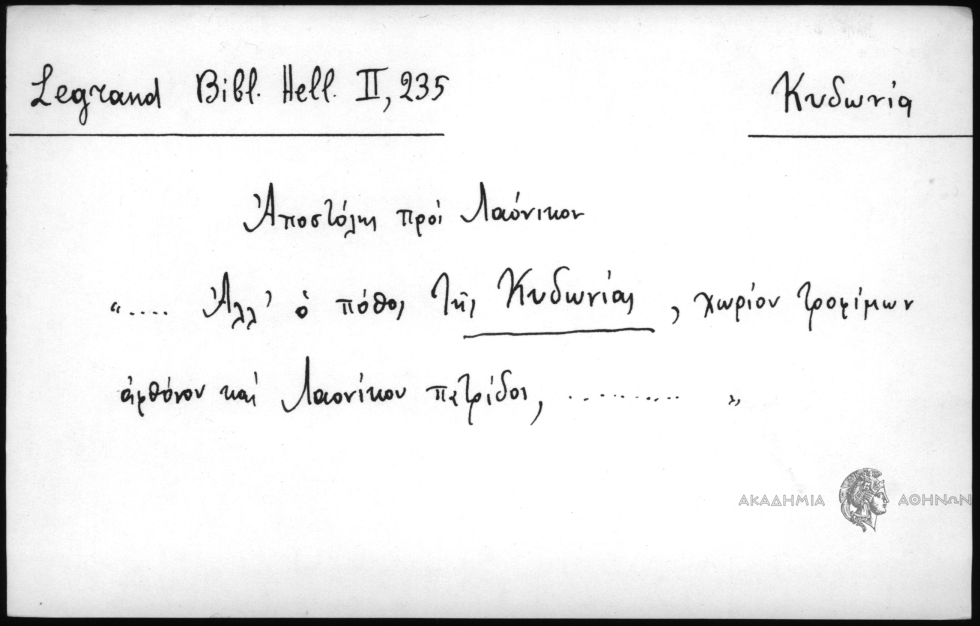 Legrand Bibl. Hell. II, 235
Κυδωνία
Ἀποστόλης πρὸς Λαόνικον
“.... Ἀλλ' ὁ πόθος τῆς Κυδωνίας, χωρίον τροφίμων
ἀφθόνον καὶ Λαονίκου πατρίδος, .......... ”
ΑΚΑΔΗΜΙΑ ΑΘΗΝΩΝ